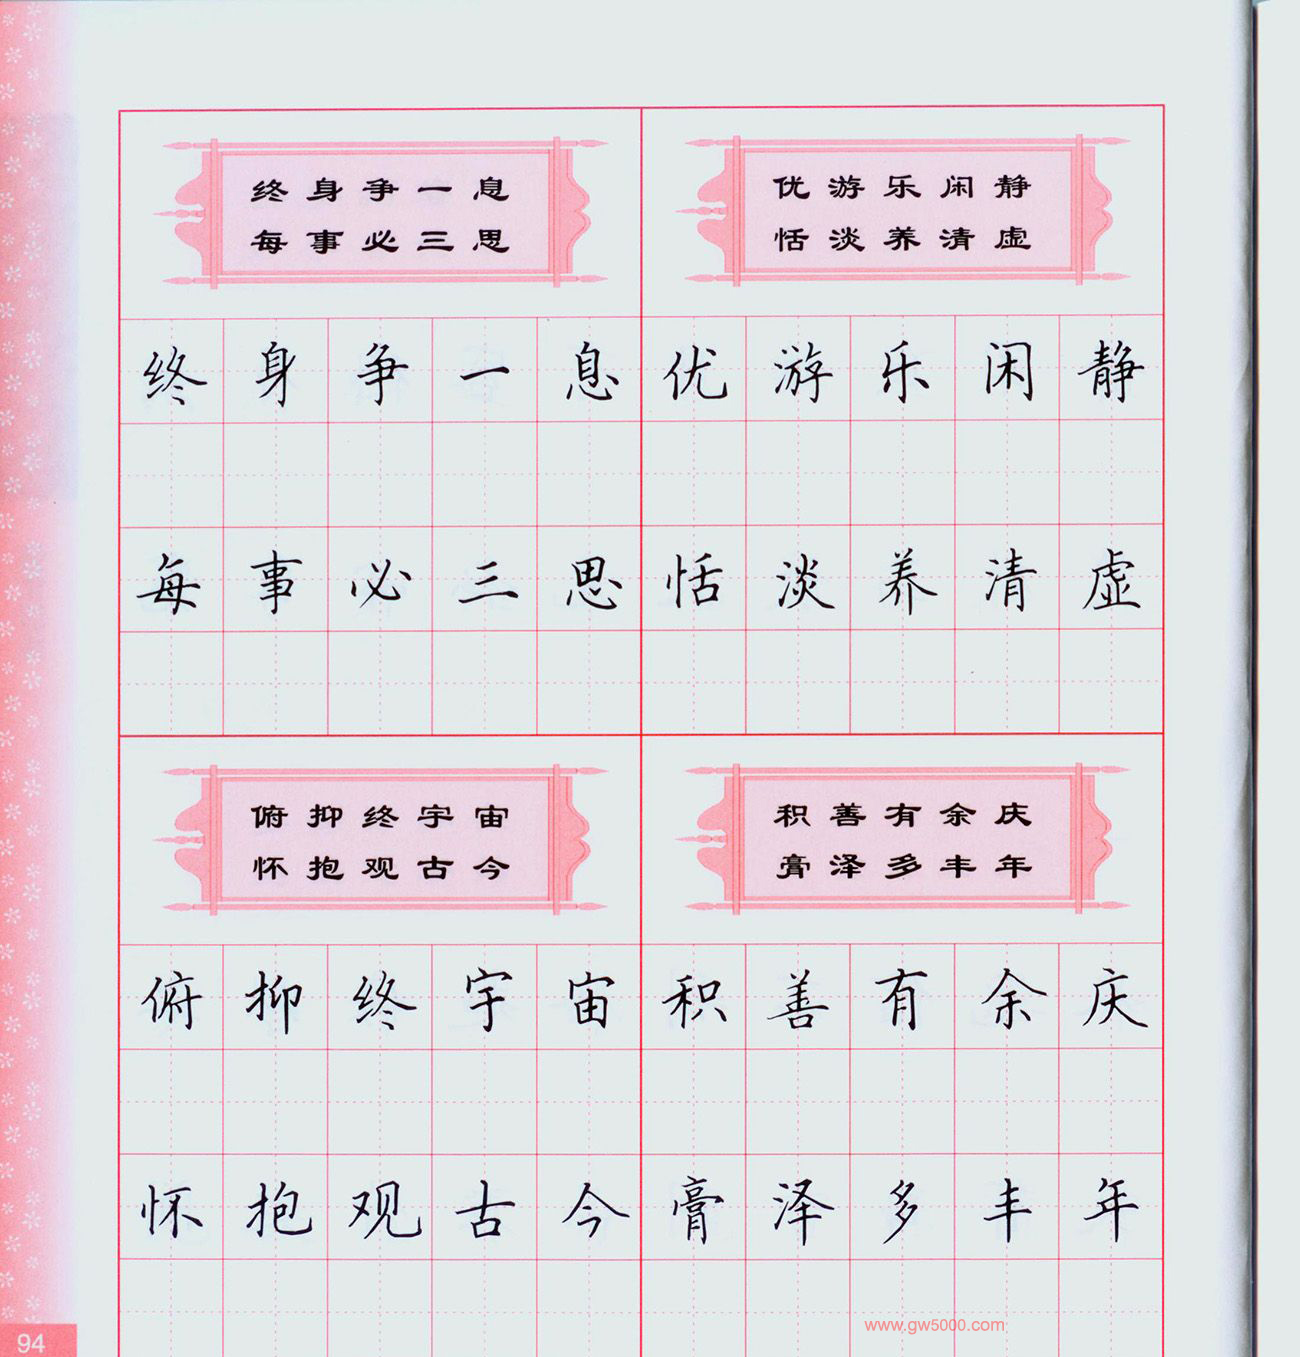 终身争一息
每事必三思
优游乐闲静
恬淡养清虚
终身争一息
每事必三思
优游乐闲静
恬淡养清虚
俯抑终宇宙
怀抱观古今
积善有余庆
膏泽多丰年
俯抑终宇宙
怀抱观古今
积善有余庆
膏泽多丰年
www.gw5000.com
94